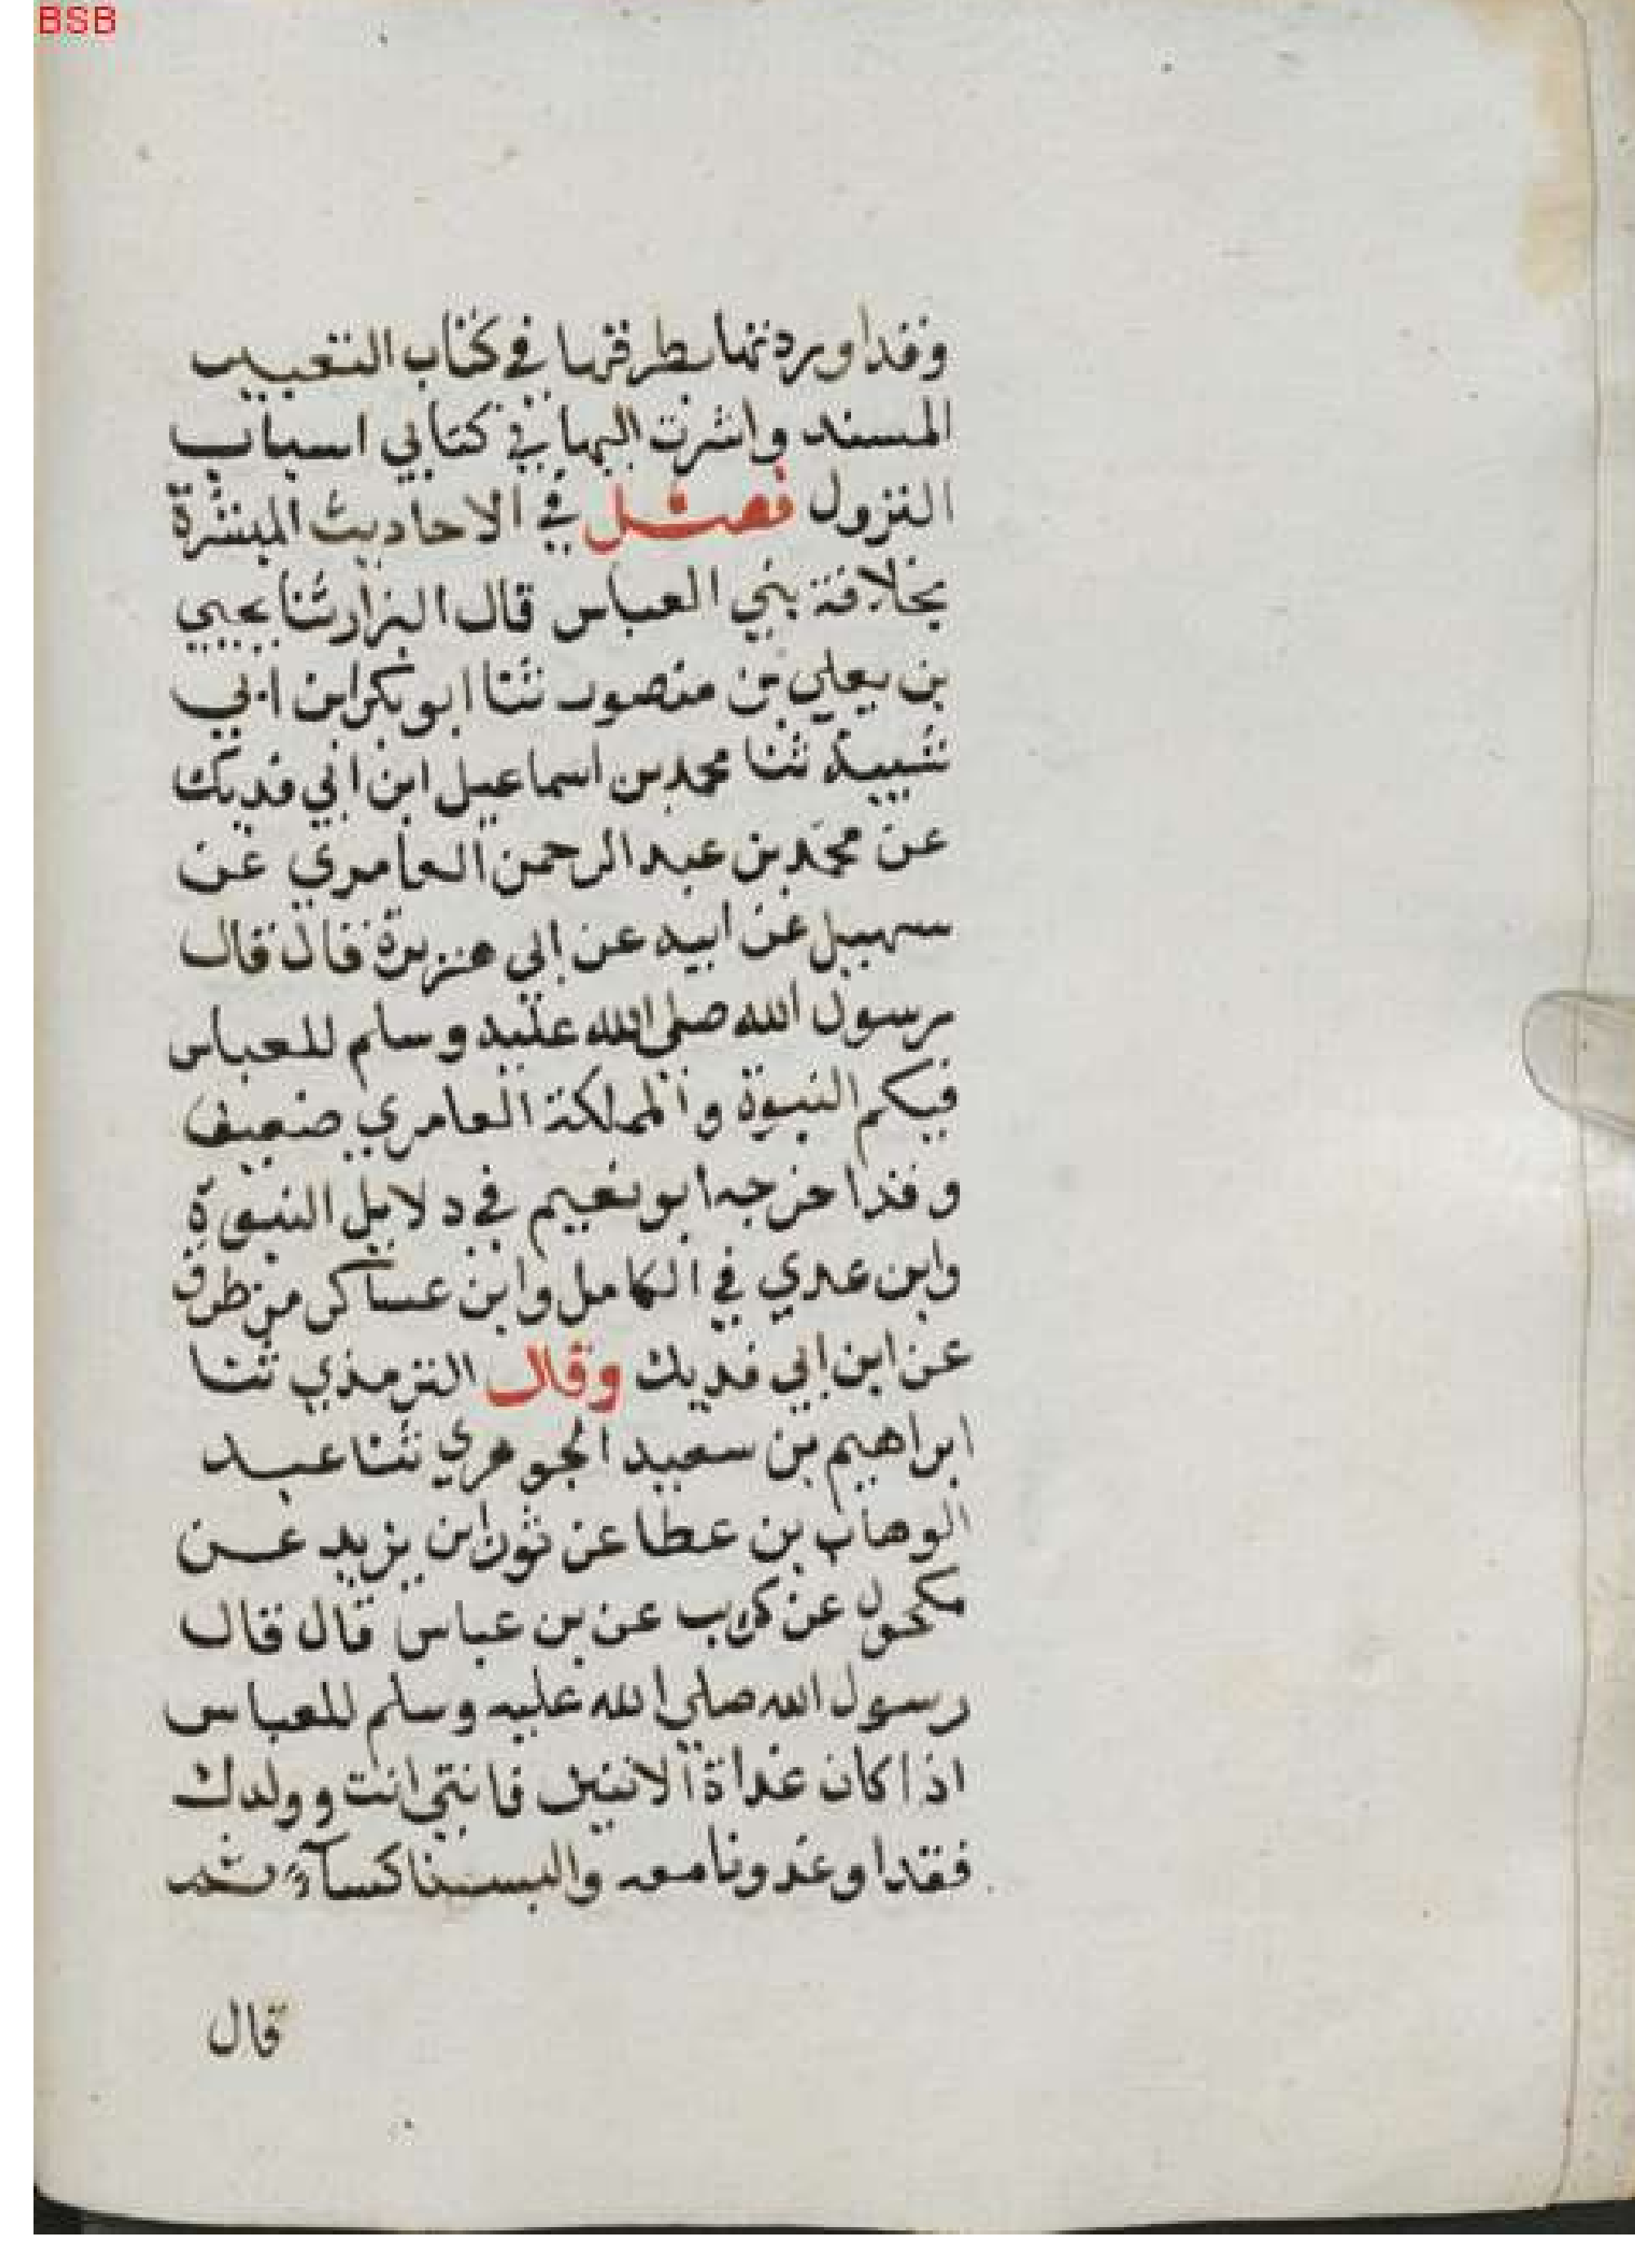 BSB
وقد اوردتها بطرقها في كتاب التفسير
المسند واشرت اليها في كتابي اسباب
النزول فصل في الاحاديث المبشرة
بخلافة بني العباس قال البزار ثنا يحيي
بن يعلي بن منصور ثنا ابو بكر ابن ابي
شيبة ثنا محمد بن اسماعيل ابن ابي فديك
عن محمد بن عبد الرحمن العامري عن
سهيل عن ابيه عن ابي هريرة قال قال
رسول الله صلي الله عليه وسلم للعباس
فيكم النبوة والمملكة العامري ضعيف
وقد اخرجه ابو نعيم في دلايل النبوة
وابن عدي في الكامل وابن عساكر من طرق
عن ابن ابي فديك وقال الترمذي ثنا
ابراهيم بن سعيد الجوهري ثنا عبد
الوهاب بن عطا عن ثور ابن يزيد عن
مكحول عن كريب عن بن عباس قال قال
رسول الله صلي الله عليه وسلم للعباس
اذا كان غداة الاثنين فائتني انت وولدك
فغدا وغدونا معه والبسنا كساء ثم
قال